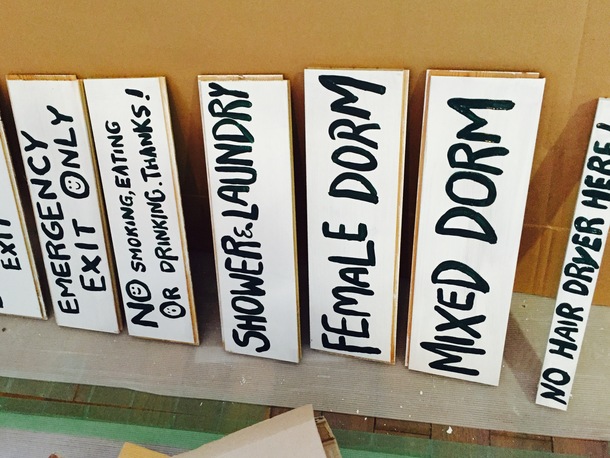 EXIT
EMERGENCY
EXIT ONLY
NO SMOKING, EATING
OR DRINKING. THANKS!
SHOWER & LAUNDRY
FEMALE DORM
MIXED DORM
NO HAIR DRYER HERE!